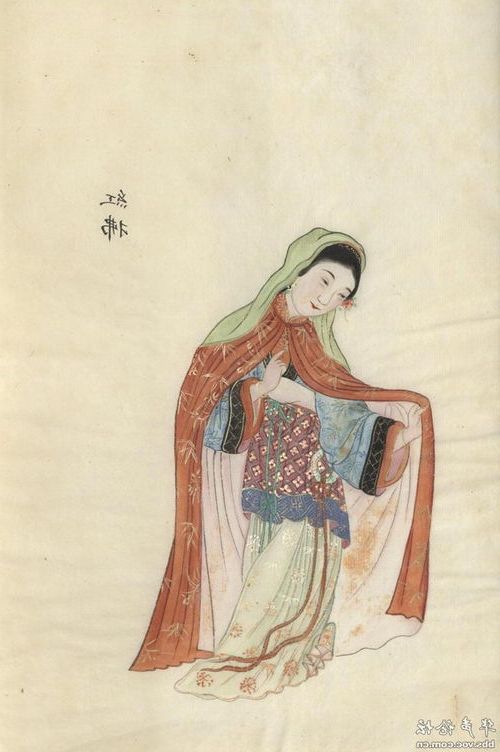 紅拂
华声论坛
bbs.voc.com.cn